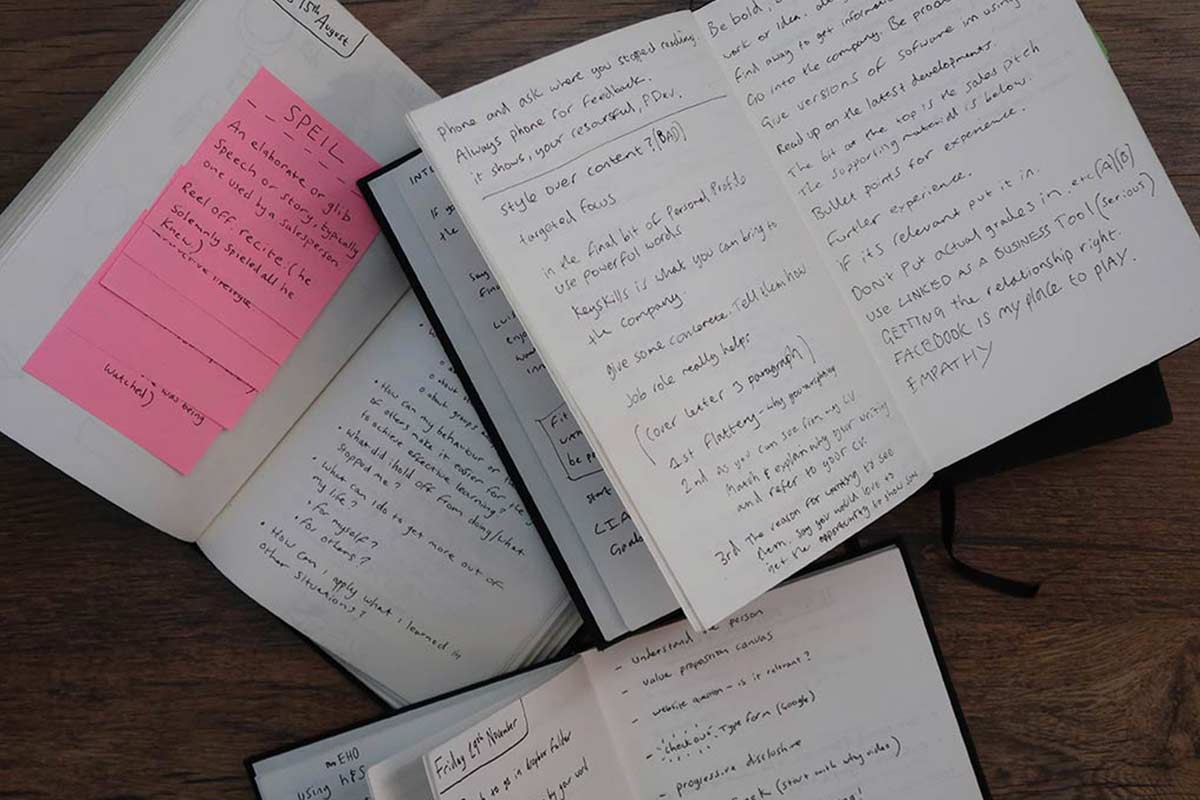 15th August
SPEIL
An elaborate or glib
Speech or story, typically
one used by a salesperson
Reel off. recite. (he
Solemnly spieled all he
knew.)
was being
watched)
How can my behaviour or
of others make it easier for
to achieve effective learning?
What did i hold off from doing/what
stopped me?
What can i do to get more out of
my life?
For myself?
For others?
How can i, apply what i learned in
other situations?
phone and ask where you stopped reading.
Always phone for feedback.
it shows, your resoursful, PDev.
Style over content? (BAD)
targeted focus
in the final bit of Personal Profile
use powerful words
Keyskills is what you can bring to
the company
give some concrete. Tell them how
Job role really helps
(Cover letter 3 paragraph)
1st flattery - why
2nd as you can see from my CV
and refer to your CV.
3rd The reason for wanting to see
them. say you would love to
get the opportunity to show
Be bold,
work or idea.
find away to get information
Go into the company. Be
Give versions of sofware im using
Read up on the latest developments.
The bit at the top is the sales pitch
The supporting material is below.
Bullet points for experience.
Further experience.
If it's relevant put it in.
Don't Put actual grades in.. etc (A)(B)
use LINKED AS A BUSINESS TOOL (serious)
GETTING the relationship right.
FACEBOOK IS my place to PLAY.
EMPATHY
- understand the person
- value proposition canvas
- website question - is it relevant?
- check out Type form (Google)
- progressive disclosure
(start with why video)
Friday 29th November
using